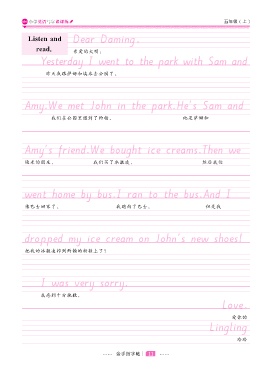 小学英语写字课课练
五年级(上)
Listen and read.
Dear Daming,
亲爱的大明，
Yesterday I went to the park with Sam and
昨天我跟萨姆和埃米去公园了。
Amy.We met John in the park.He's Sam and
我们在公园里遇到了约翰。 他是萨姆和
Amy's friend.We bought ice creams.Then we
埃米的朋友。 我们买了冰激凌。 然后我们
went home by bus.I ran to the bus.And I
乘巴士回家了。 我跑向了巴士。 但是我
dropped my ice cream on John's new shoes!
把我的冰激凌掉到约翰的新鞋上了!
I was very sorry.
我感到十分抱歉。
Love,
爱你的
Lingling
玲玲